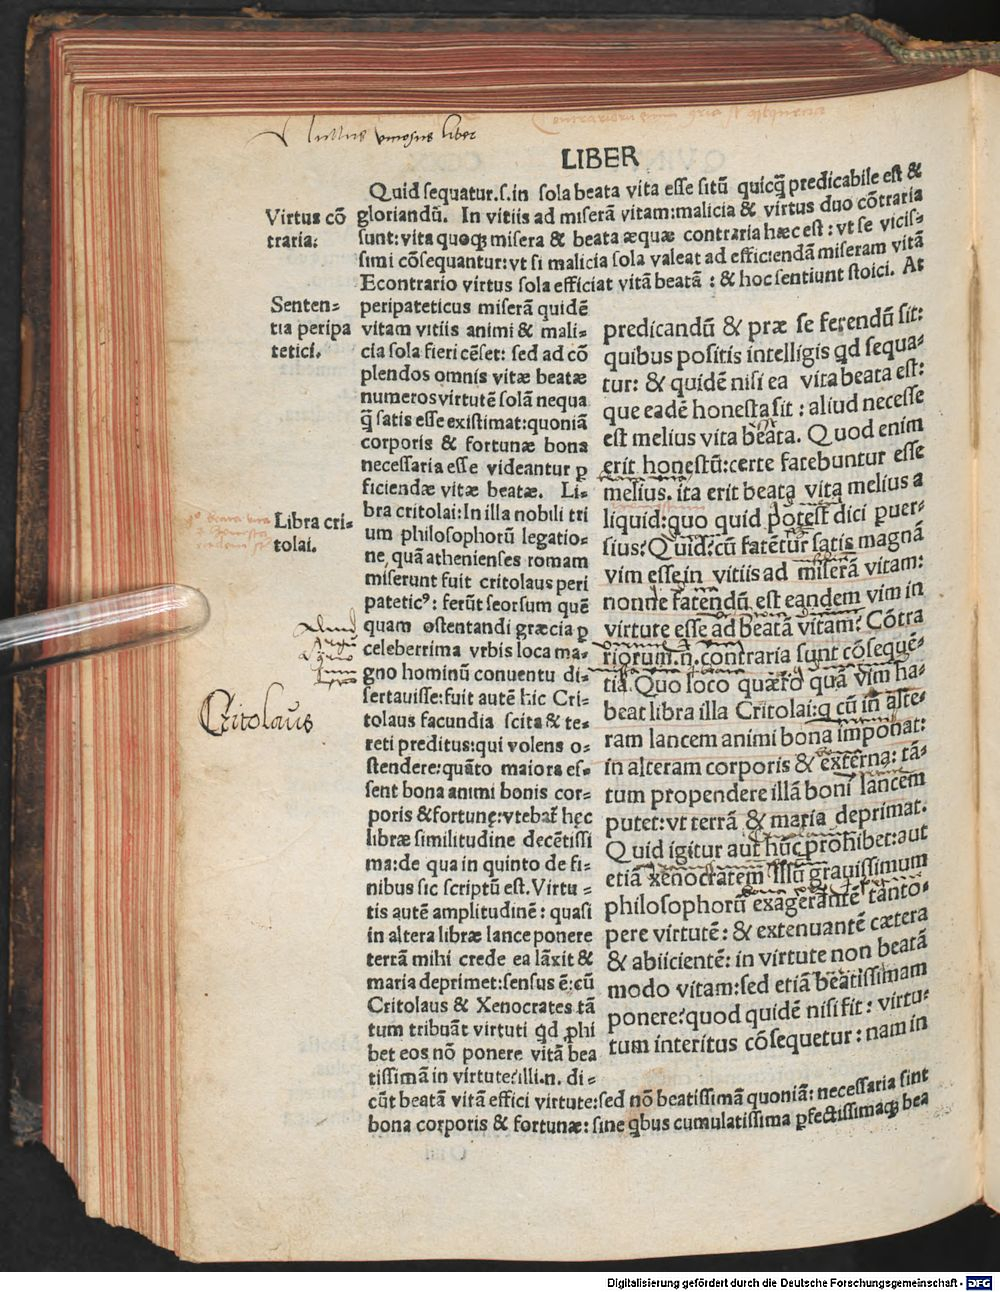 Nullus vinosus liber
LIBER
Quid sequatur.s.in sola beata vita esse sitū quicq̄ predicabile est &
gloriandū. In vitiis ad miserā vitam:malicia & virtus duo cōtraria
sunt:vita quoqꝫ misera & beata æquæ contraria hæc est : vt se vicis-
simi cōsequantur:vt si malicia sola valeat ad efficiendā miseram vitā
Econtrario virtus sola efficiat vitā beatā : & hoc sentiunt stoici. At
Virtus cō
traria:
Senten-
tia peripa
tetici.
Libra cri-
tolai.
Critolaus
peripateticus miserā quidē
vitam vitiis animi & mali-
cia sola fieri cēset: sed ad cō
plendos omnis vitæ beatæ
numeros virtutē solā nequa
q̄ satis esse existimat:quoniā
corporis & fortunæ bona
necessaria esse videantur ꝑ
ficiendæ vitæ beatæ. Li-
bra critolai:In illa nobili tri
um philosophorū legatio-
ne, quā athenienses romam
miserunt fuit critolaus peri
patetic⁹: ferūt seorsum quē
quam ostentandi græcia ꝑ
celeberrima vrbis loca ma-
gno hominū conuentu di-
sertauisse:fuit autē hic Cri-
tolaus facundia scita & te-
reti preditus:qui volens o-
stendere:quāto maiora es-
sent bona animi bonis cor-
poris & fortunę:vtebat̄ hęc
libræ similitudine decētissi
ma:de qua in quinto de fi-
nibus sic scriptū est. Virtu -
tis autē amplitudinē : quasi
in altera libræ lance ponere
terrā mihi crede ea lāxit &
maria deprimet:sensus ē:cū
Critolaus & Xenocrates tā
tum tribuāt virtuti qd ꝓhi
bet eos nō ponere vitā bea
tissimā in virtute?illi.n. di-
cūt beatā vitā effici virtute:sed nō beatissimā quoniā: necessaria sint
bona corporis & fortunæ: sine qbus cumulatissima ꝑfectissimaqꝫ bea
predicandū & præ se ferendū sit:
quibus positis intelligis qd sequa-
tur: & quidē nisi ea vita beata est:
que eadē honesta sit : aliud necesse
est melius vita beata. Quod enim
erit honestū:certe fatebuntur esse
melius. ita erit beata vita melius a
liquid:quo quid potest dici ꝑuer-
sius? Quid?cū fatētur satis magnā
vim esse in vitiis ad miserā vitam:
nonne fatendū est eandem vim in
virtute esse ad beatā vitam? Cōtra
riorum.n̄.contraria sunt cōsequē-
tia. Quo loco quæro quā vim ha-
beat libra illa Critolai:q cū in alte-
ram lancem animi bona imponat:
in alteram corporis & externa: tā-
tum propendere illā boni lancem
putet:vt terrā & maria deprimat.
Quid igitur aut hūc prohibet:aut
etiā xenocratem illū grauissimum
philosophorū exagerāntē tanto-
pere virtutē: & extenuantē cætera
& abiicientē: in virtute non beatā
modo vitam:sed etiā beatissimam
ponere?quod quidē nisi fit : virtu-
tum interitus cōsequetur : nam in
Digitalisierung gefördert durch die Deutsche Forschungsgemeinschaft - DFG